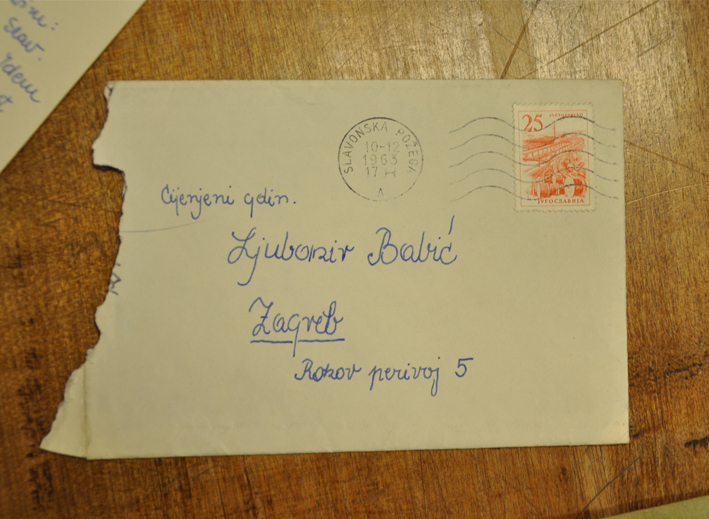 Slav.
Idem
SLAVONSKA POŽEGA
10-12
1963
17 H
A
25
JUGOSLAVIJA
Cijenjeni gdin.
Ljubomir Babić
Zagreb
Rokov perivoj 5